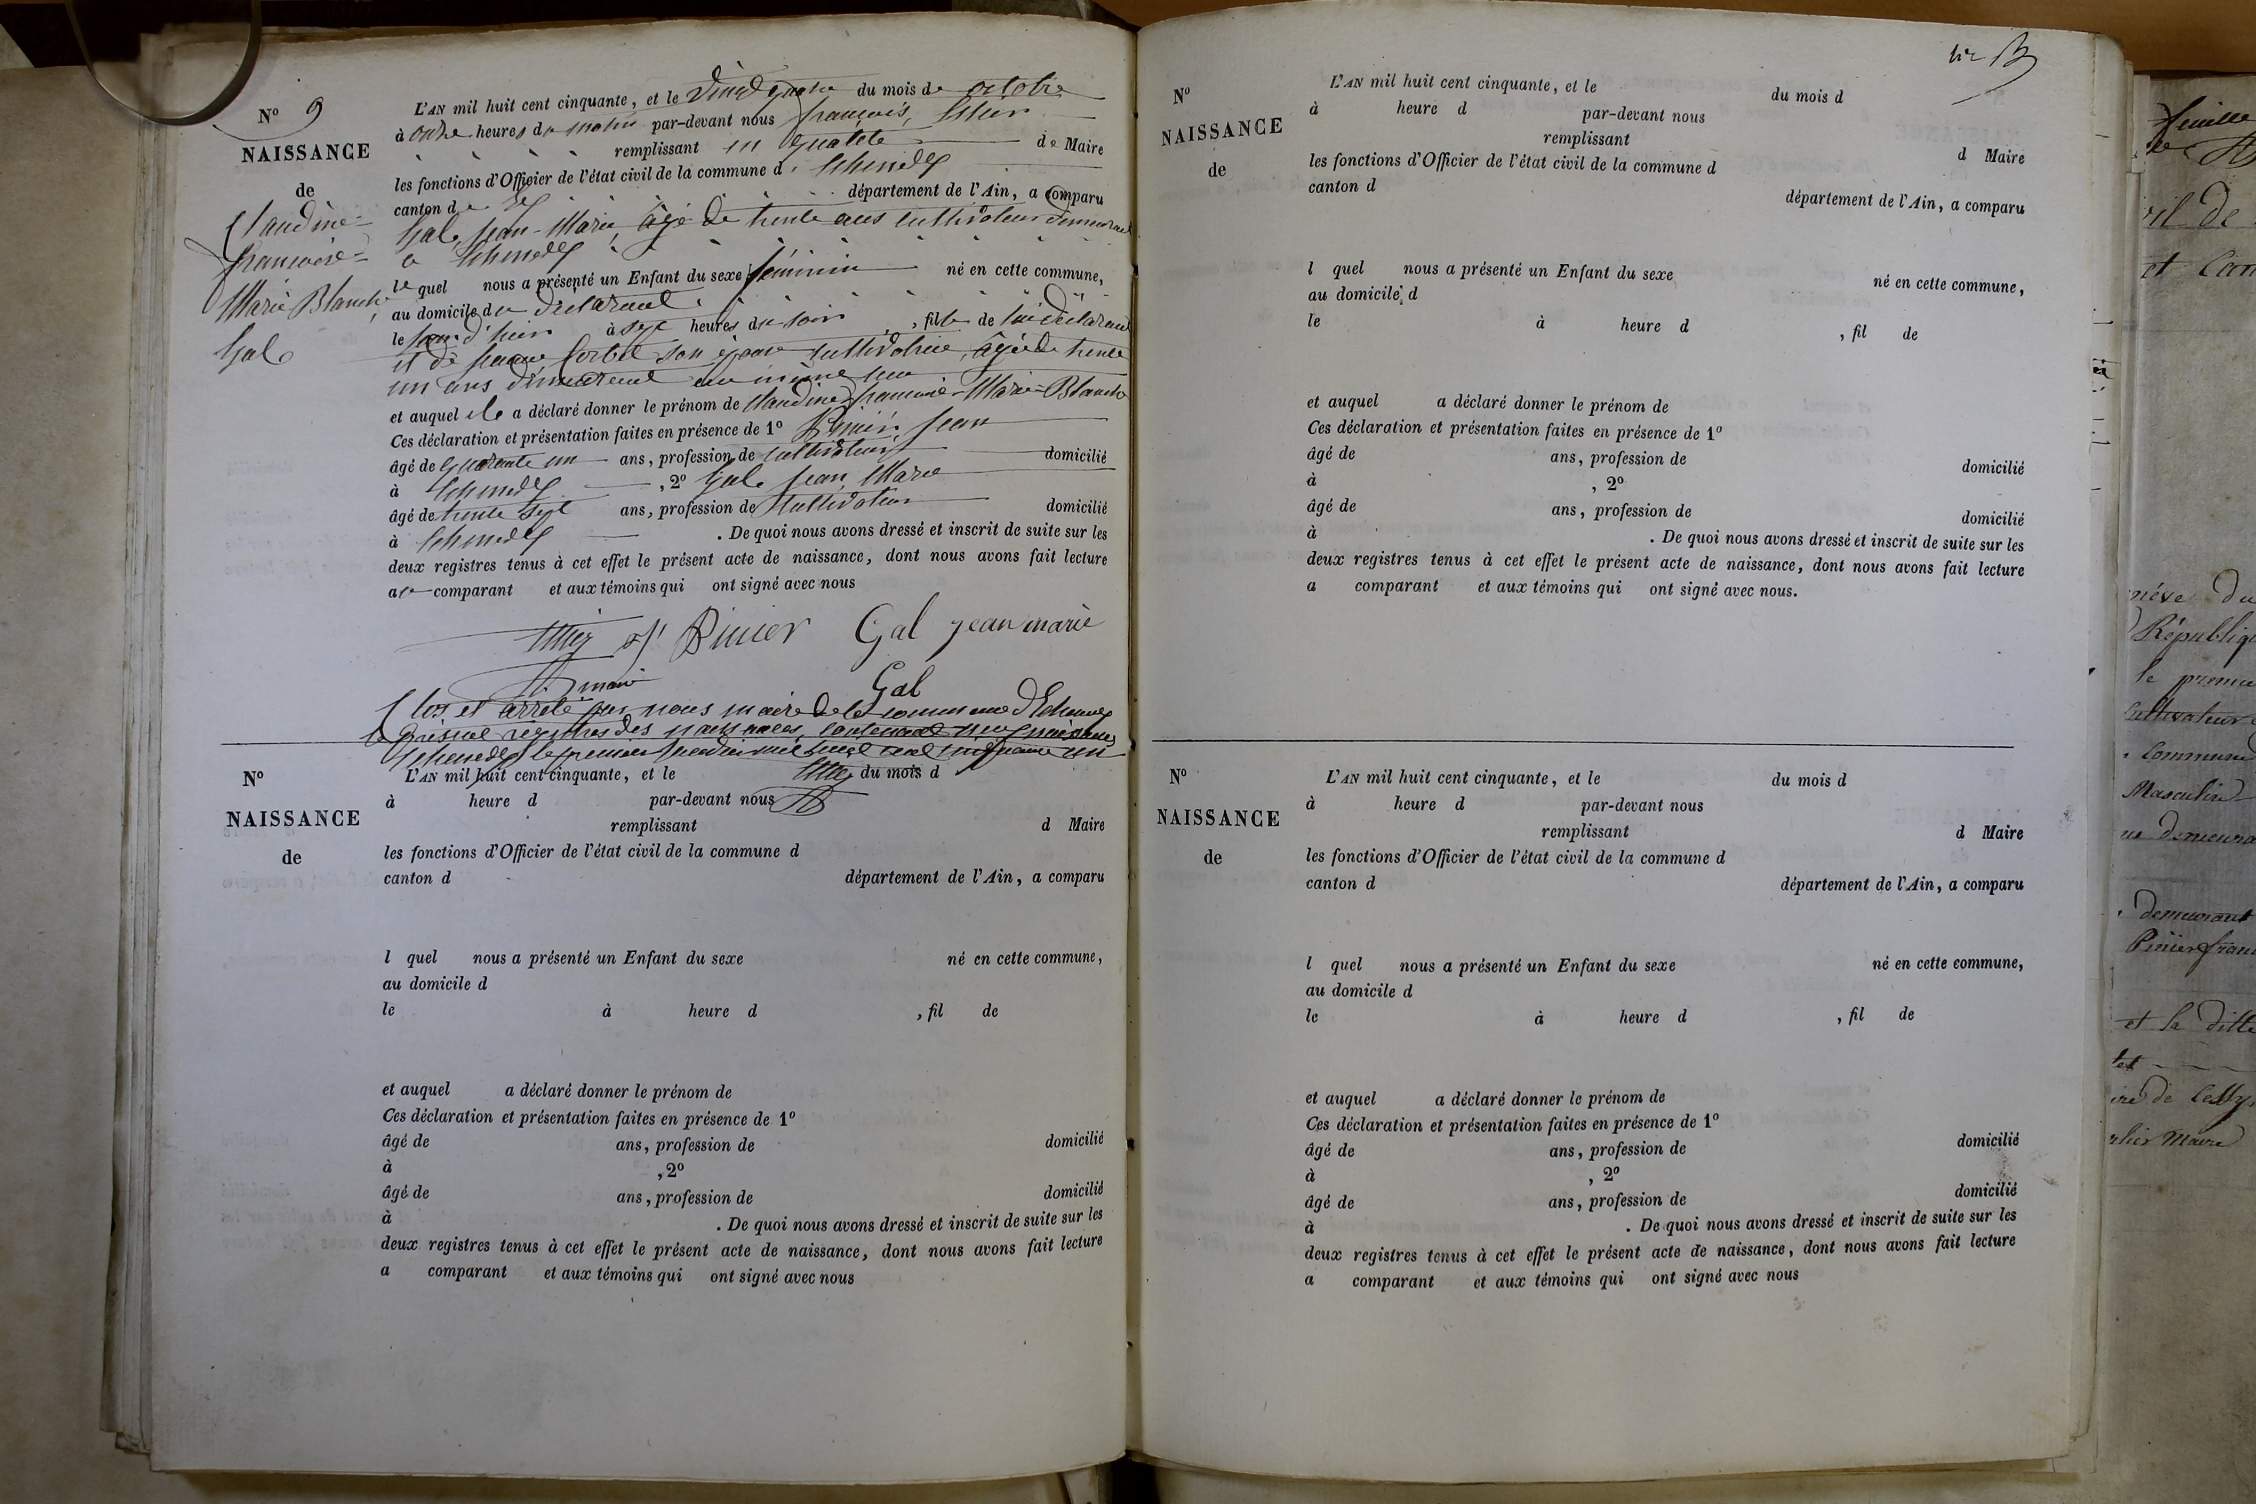 Nº 9
NAISSANCE
de
Claudine-
françoise-
Marie Blanche
Gal
L'AN mil huit cent cinquante, et le vingt quatre du mois de octobre
à onze heures du matin par-devant nous françois,
remplissant en qualité de Maire
les fonctions d'Officier de l'état civil de la commune d
canton de département de l'Ain, a comparu
Gal, Jean-Marie, âgé de trente ans cultivateur demeurant
a
lequel nous a présenté un Enfant du sexe féminin né en cette commune,
au domicile du déclarant
le jour d'hier à sept heures du soir, fille de lui déclarant
et de son épouse cultivatrice, âgée de trente
un ans demeurant au même lieu
et auquel il a déclaré donner le prénom de Claudine françoise-Marie-Blanche
Ces déclaration et présentation faites en présence de 1º Pinier Jean
âgé de quarante un ans, profession de cultivateur domicilié
à , 2º Gal, Jean, Marie
âgé de trente sept ans, profession de cultivateur domicilié
à . De quoi nous avons dressé et inscrit de suite sur les
deux registres tenus à cet effet le présent acte de naissance, dont nous avons fait lecture
au comparant et aux témoins qui ont signé avec nous
Pinier Gal jean marie
maire
Gal
Clos et arrêté par nous maire de la commune d'Echenevex
le présent registre des naissances, contenant neuf naissances
le premier janvier mil huit cent cinquante un
Nº
NAISSANCE
de
L'AN mil huit cent cinquante, et le du mois d
à heure d par-devant nous
remplissant d Maire
les fonctions d'Officier de l'état civil de la commune d
canton d département de l'Ain, a comparu
l quel nous a présenté un Enfant du sexe né en cette commune,
au domicile d
le à heure d , fil de
et auquel a déclaré donner le prénom de
Ces déclaration et présentation faites en présence de 1º
âgé de ans, profession de domicilié
à , 2º
âgé de ans, profession de domicilié
à . De quoi nous avons dressé et inscrit de suite sur les
deux registres tenus à cet effet le présent acte de naissance, dont nous avons fait lecture
a comparant et aux témoins qui ont signé avec nous
Nº
NAISSANCE
de
L'AN mil huit cent cinquante, et le du mois d
à heure d par-devant nous
remplissant d Maire
les fonctions d'Officier de l'état civil de la commune d
canton d département de l'Ain, a comparu
l quel nous a présenté un Enfant du sexe né en cette commune,
au domicile d
le à heure d , fil de
et auquel a déclaré donner le prénom de
Ces déclaration et présentation faites en présence de 1º
âgé de ans, profession de domicilié
à , 2º
âgé de ans, profession de domicilié
à . De quoi nous avons dressé et inscrit de suite sur les
deux registres tenus à cet effet le présent acte de naissance, dont nous avons fait lecture
a comparant et aux témoins qui ont signé avec nous.
Nº
NAISSANCE
de
L'AN mil huit cent cinquante, et le du mois d
à heure d par-devant nous
remplissant d Maire
les fonctions d'Officier de l'état civil de la commune d
canton d département de l'Ain, a comparu
l quel nous a présenté un Enfant du sexe né en cette commune,
au domicile d
le à heure d , fil de
et auquel a déclaré donner le prénom de
Ces déclaration et présentation faites en présence de 1º
âgé de ans, profession de domicilié
à , 2º
âgé de ans, profession de domicilié
à . De quoi nous avons dressé et inscrit de suite sur les
deux registres tenus à cet effet le présent acte de naissance, dont nous avons fait lecture
a comparant et aux témoins qui ont signé avec nous
feuille
République
le premier
Cultivateur
commune
Masculin
demeurant
Pinier
et la ditte
Maire